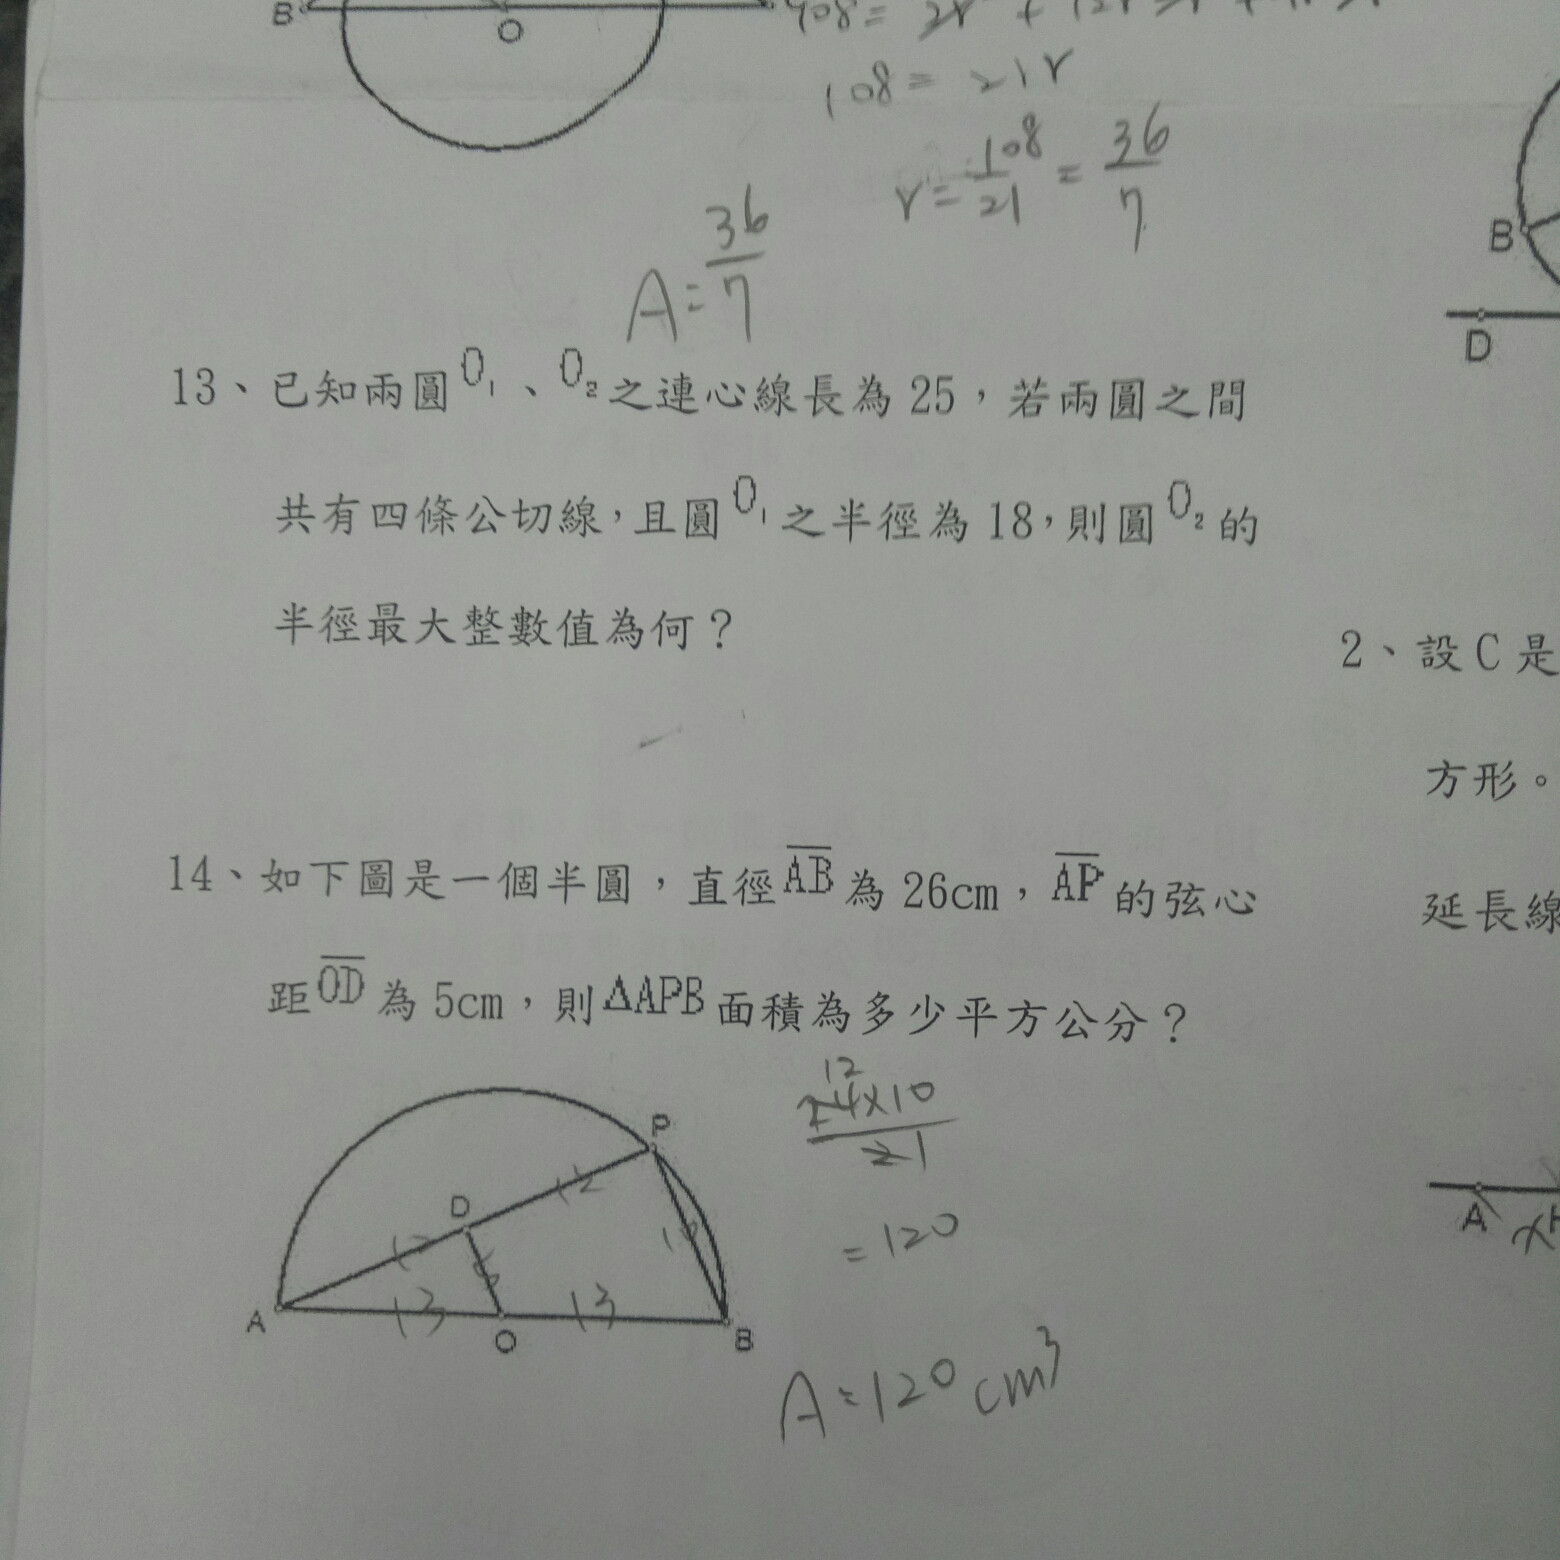 B
O
108 = 21r
r = 108/21 = 36/7
A = 36/7
B
D
13、已知兩圓O₁、O₂之連心線長為 25，若兩圓之間
共有四條公切線，且圓O₁之半徑為 18，則圓O₂的
半徑最大整數值為何？
14、如下圖是一個半圓，直徑AB為 26cm，AP的弦心
距OD為 5cm，則ΔAPB面積為多少平方公分？
12
24×10
21
= 120
A = 120 cm³
P
D
12
12
10
13
13
A
O
B
2、設 C 是
方形。
延長線
A